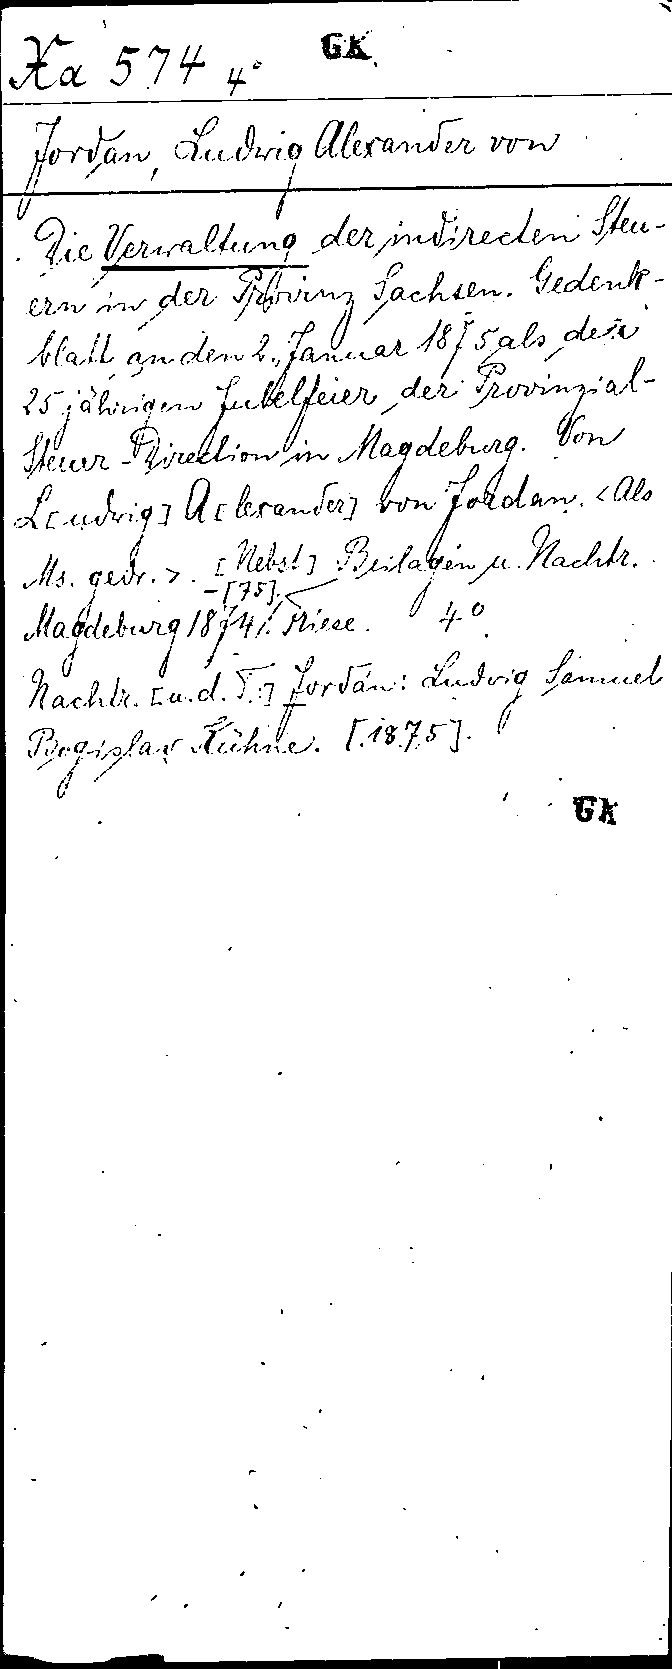 Xa 574 4°
GK
Jordan, Ludwig Alexander von
Die Verwaltung der indirecten Steu-
ern in der Provinz Sachsen. Gedenk-
blatt an den 2. Januar 1875 als der
25 jährigen Jubelfeier der Provinzial-
Steuer-Direction in Magdeburg. Von
L[udwig] A[lexander] von Jordan. <Als
Ms. gedr.>. [Nebst] Beilagen u. Nachtr.
-[75].
Magdeburg 1874: Friese. 4°
Nachtr. [u. d. T.:] Jordan: Ludwig Samuel
Bogislav Kühne. [1875].
GK